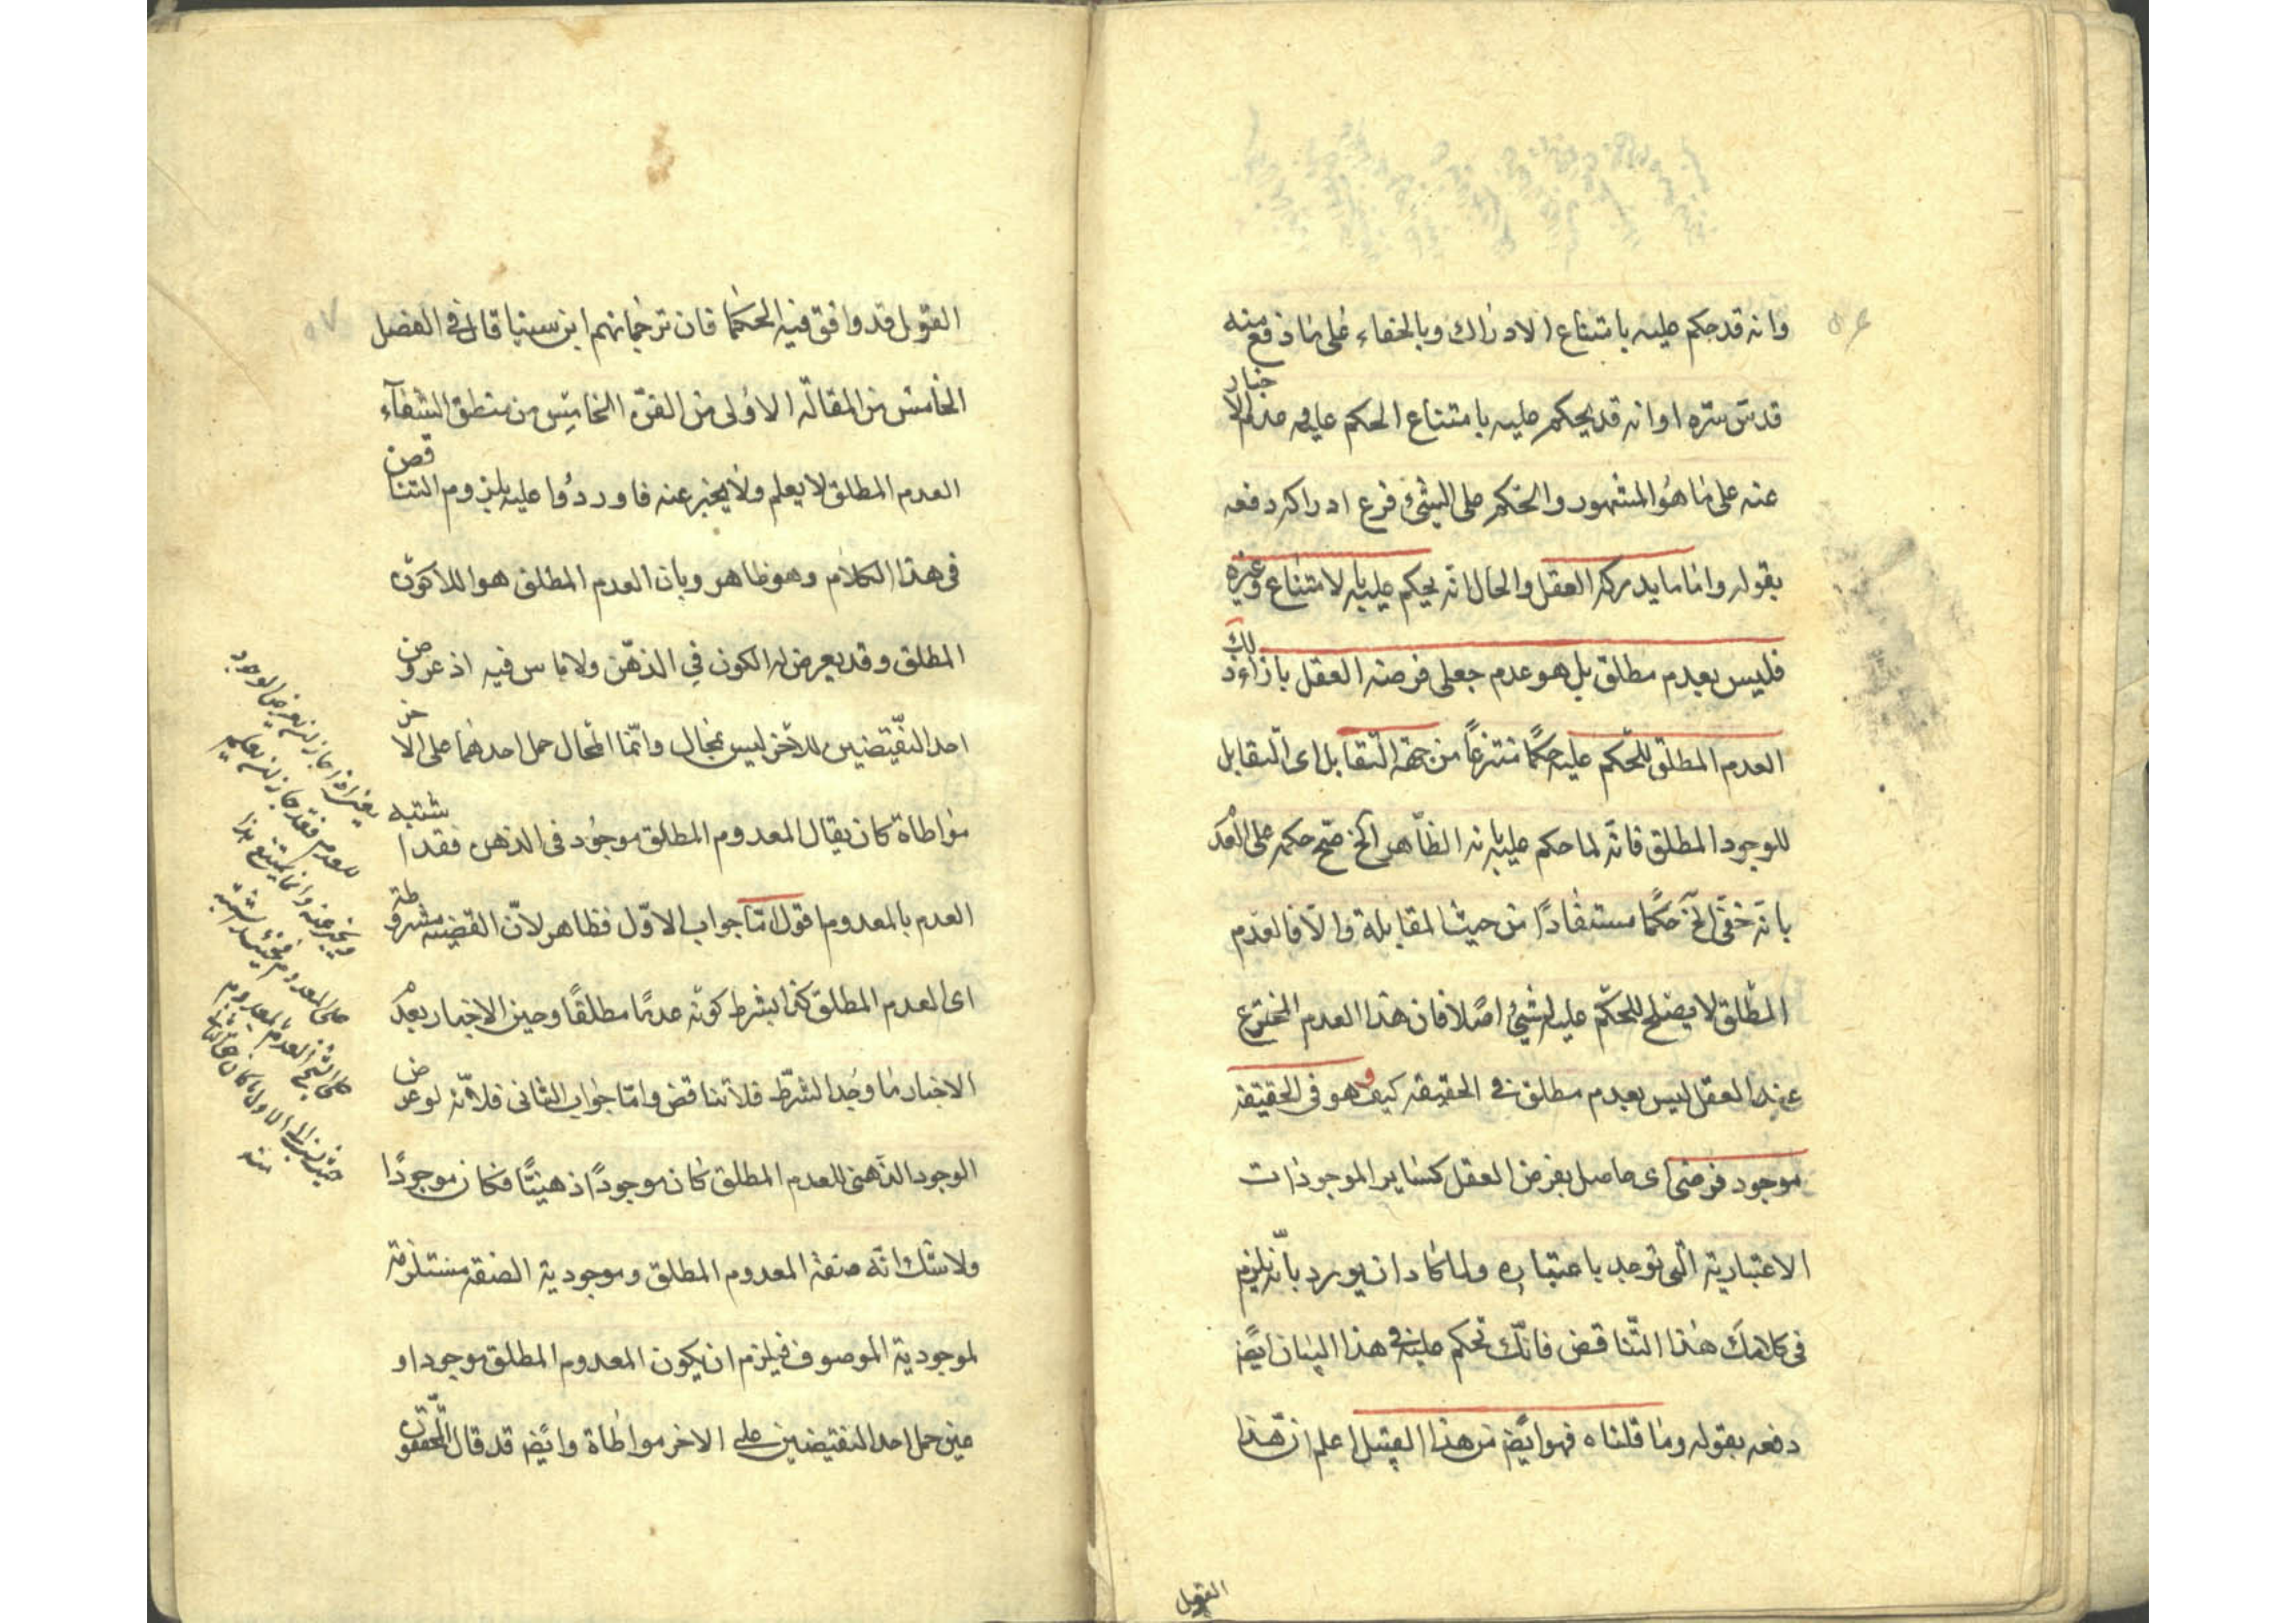 وانه قد حكم عليه بامتناع الادراك وبالخفاء على ما ذ وقع منه
قدس سره او انه قد يحكم عليه بامتناع الحكم عليه وعدم الاخبار
عنه على ما هو المشهور والحكم على الشئ فرع ادراكه دفعه
بقوله واما ما يدركه العقل والحال انه يحكم عليه بالامتناع وغيره
فليس بعدم مطلق بل هو عدم جعلى فرضه العقل بازاء ذلك
العدم المطلق للحكم عليه حكما منتزعا من جهة التقابل اى التقابل
للوجود المطلق فانه لما حكم عليه بانه الظاهر الخ صح حكمه على العدم
بانه خفى الخ حكما مستفادا من حيث المقابلة والا فالعدم
المطلق لا يصلح للحكم عليه بشئ اصلا فان هذا العدم المخترع
عند العقل ليس بعدم مطلق فى الحقيقة كيف وهو فى الحقيقة
موجود فرضى اى حاصل بفرض العقل كساير الموجودات
الاعتبارية التى توجد باعتباره ولما كاد ان يورد بانه يلزم
فى كلامك هذا التناقض فانك تحكم عليه فى هذا البيان ايضا
دفعه بقوله وما قلناه فهو ايضا من هذا القبيل اعلم ان هذا
القول
القول قد وافق فيه الحكما فان ترجمانهم ابن سينا قال فى الفصل
الخامس من المقالة الاولى من الفن الخامس من منطق الشفاء
العدم المطلق لا يعلم ولا يخبر عنه فاوردوا عليه بلزوم التناقض
فى هذا الكلام وهو ظاهر وبان العدم المطلق هو اللاكون
المطلق وقد يعرض له الكون فى الذهن ولا باس فيه اذ عروض
احد النقيضين للاخر ليس بمحال وانما المحال حمل احدهما على الاخر
مواطاة كان يقال المعدوم المطلق موجود فى الذهن فقد اشتبه
العدم بالمعدوم اقول اما جواب الاول فظاهر لان القضية مشروطة
اى العدم المطلق كذا بشرط كونه عدما مطلقا وحين الاخبار بعدم
الاخبار ما وجد الشرط فلا تناقض واما جواب الثانى فلانه لو عرض
الوجود الذهنى للعدم المطلق كان موجودا ذهنيا فكان موجودا
ولا شك انه صفة المعدوم المطلق وموجودية الصفة مستلزمة
لموجودية الموصوف فيلزم ان يكون المعدوم المطلق موجودا و
عين حمل احد النقيضين على الاخر مواطاة وايضا قد قال المحققون
يعنى اذا جاز ان يعرض الوجود
للعدم فقد جاز ان يعلم
ويخبر عنه وانما يمتنع هذا
على المعدوم
منه